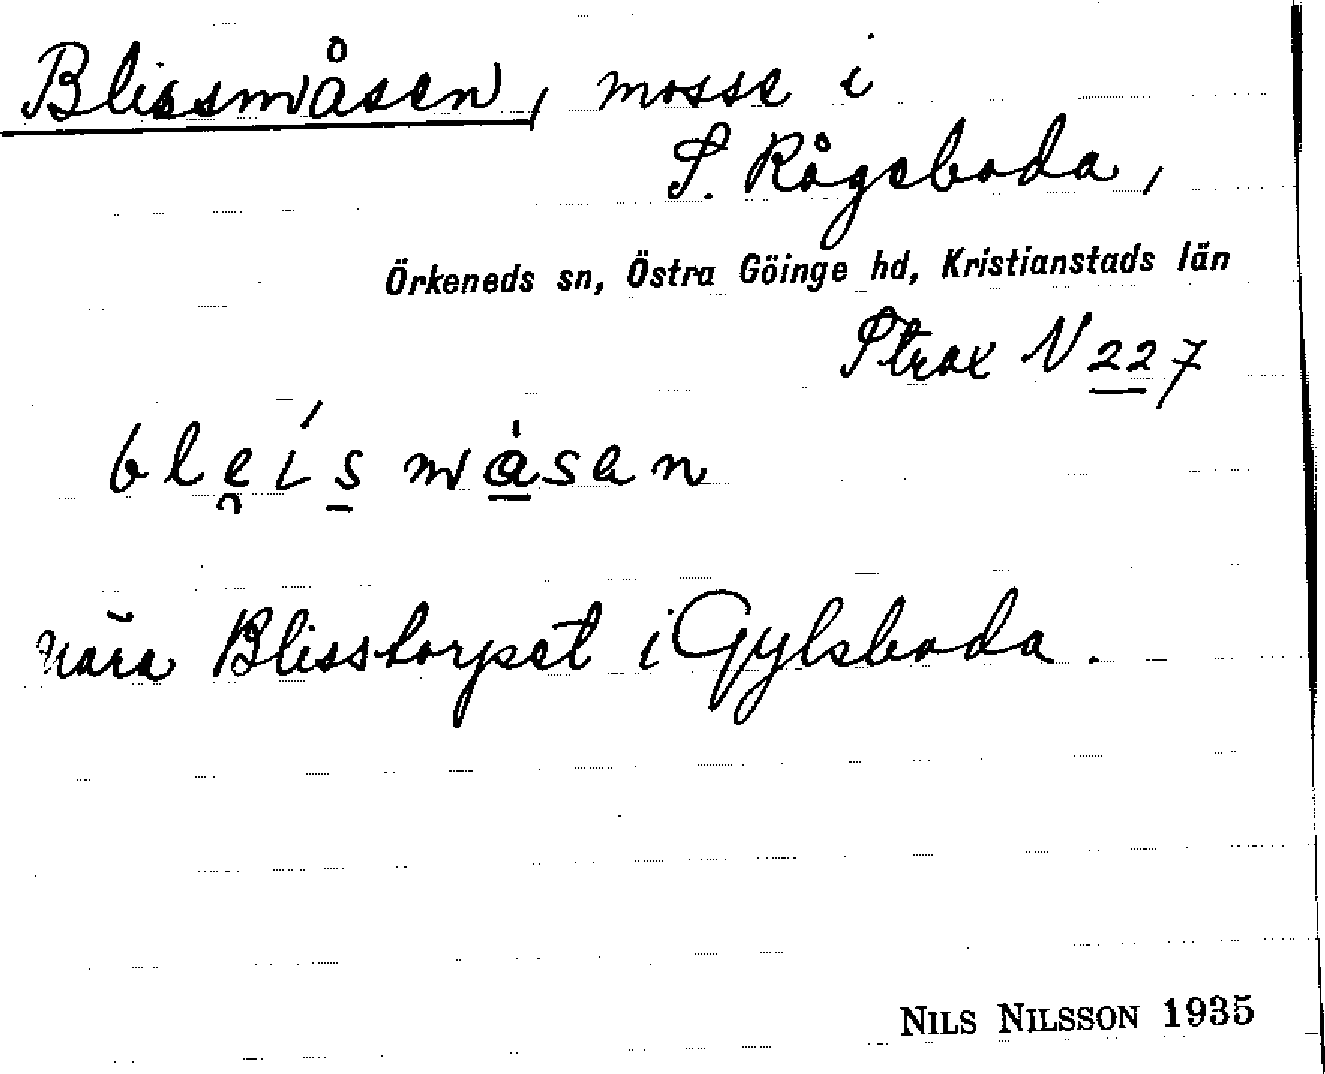 Blissmåsen, mosse i
S. Rågeboda,
Örkeneds sn, Östra Göinge hd, Kristianstads län
Strax N 227
ble̯ís̲ mα̲̍san
nära Blisstorpet i Gylsboda.
NILS NILSSON 1935